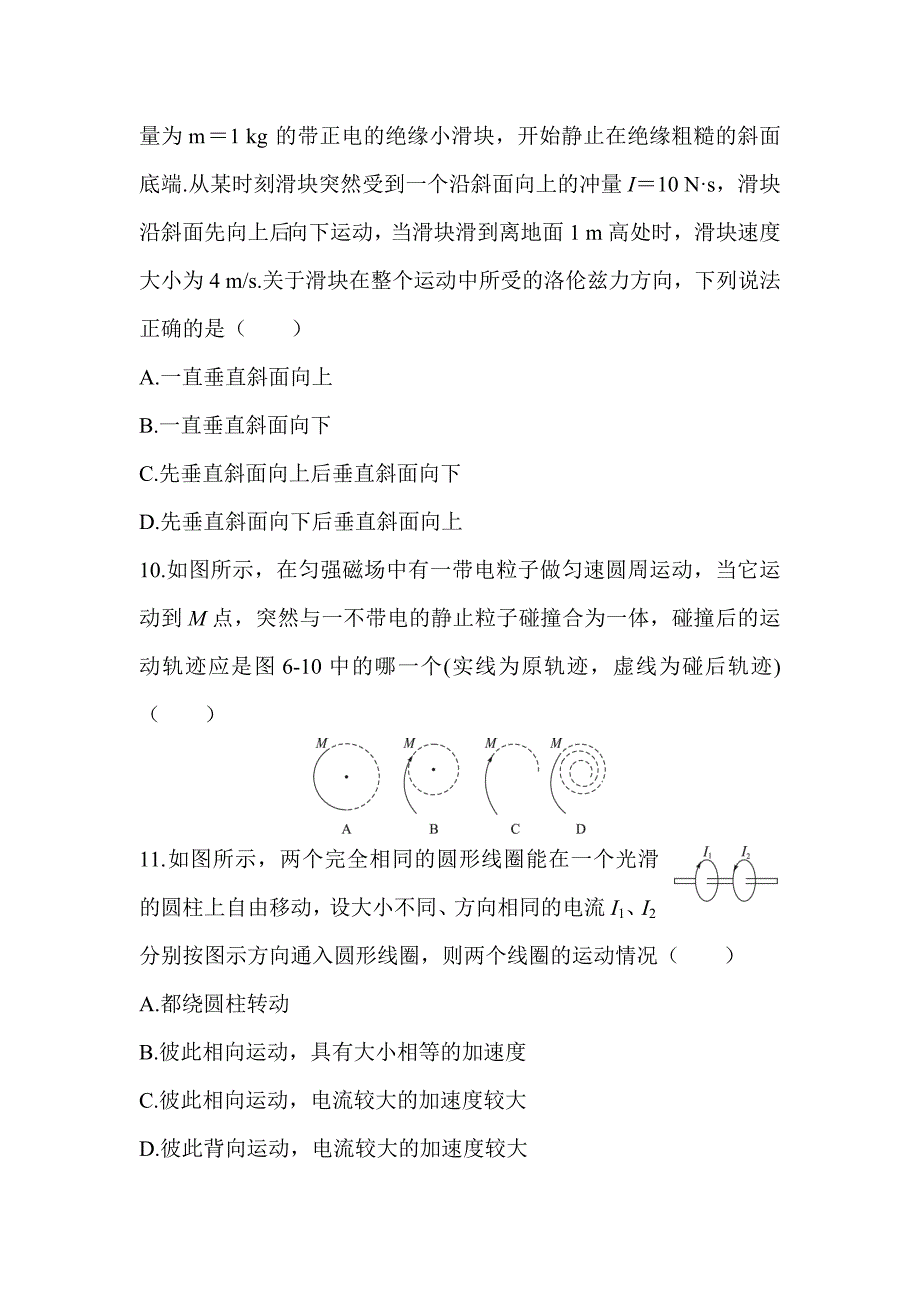 量为 m＝1 kg 的带正电的绝缘小滑块，开始静止在绝缘粗糙的斜面
底端.从某时刻滑块突然受到一个沿斜面向上的冲量 I＝10 N·s，滑块
沿斜面先向上后向下运动，当滑块滑到离地面 1 m 高处时，滑块速度
大小为 4 m/s.关于滑块在整个运动中所受的洛伦兹力方向，下列说法
正确的是（　　）
A.一直垂直斜面向上
B.一直垂直斜面向下
C.先垂直斜面向上后垂直斜面向下
D.先垂直斜面向下后垂直斜面向上
10.如图所示，在匀强磁场中有一带电粒子做匀速圆周运动，当它运
动到 M 点，突然与一不带电的静止粒子碰撞合为一体，碰撞后的运
动轨迹应是图 6-10 中的哪一个(实线为原轨迹，虚线为碰后轨迹)
（　　）
M M M M
A B C D
11.如图所示，两个完全相同的圆形线圈能在一个光滑
I1 I2
的圆柱上自由移动，设大小不同、方向相同的电流 I1、I2
分别按图示方向通入圆形线圈，则两个线圈的运动情况（　　）
A.都绕圆柱转动
B.彼此相向运动，具有大小相等的加速度
C.彼此相向运动，电流较大的加速度较大
D.彼此背向运动，电流较大的加速度较大